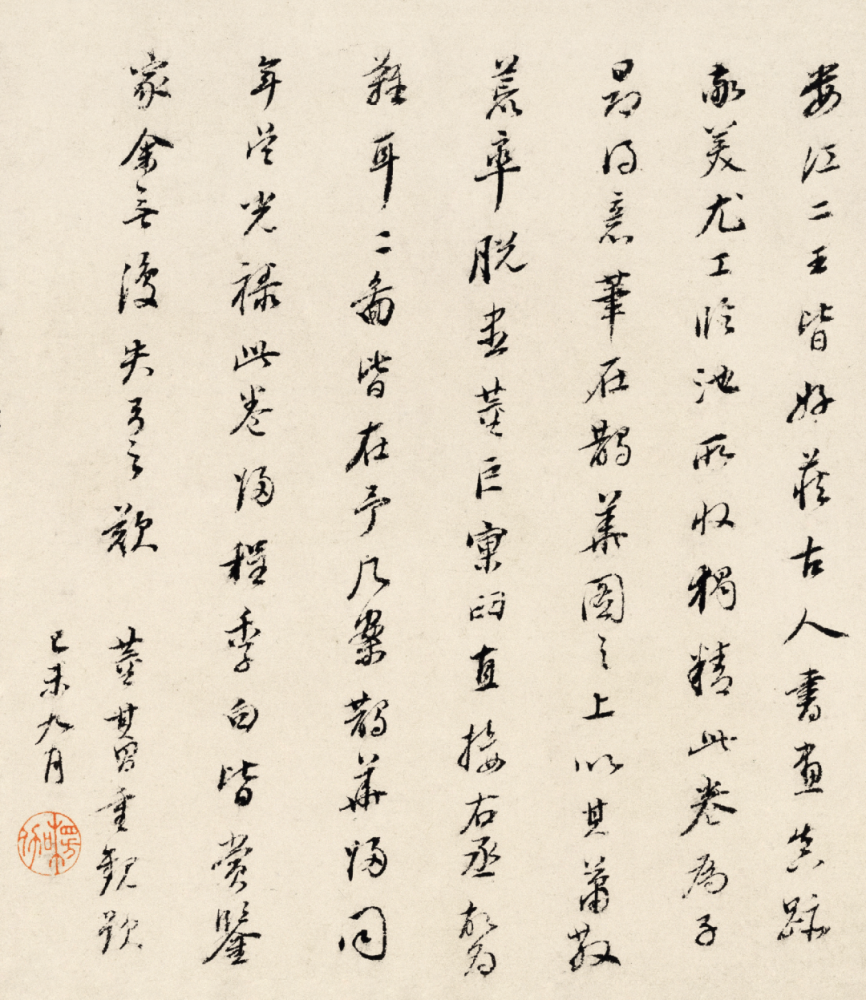 婁江二王皆好藏古人書畫真跡
敬美尤工臨池所收獨精此卷為子
昂得意筆在鵲華圖之上以其蕭散
荒率脫盡董巨窠臼直接右丞故為
難耳二圖皆在予几案鵲華歸同
年吳光祿此卷歸程季白皆賞鑒
家余無復失弓之歎
董其昌重觀題
己未九月